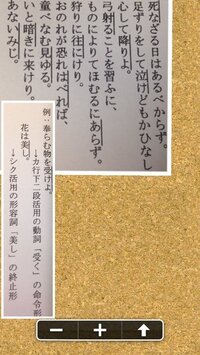 死なざる日はあるべからず。
足ずりをして泣けどもかひなし
心して降りよ。
弓射ることを習ふに、
ものによりてほむるにあらず。
狩りに往にけり。
おのれが恐れはべれば、
童べなむ見ゆる。
いと暗きに来けり。
あないみじ。
例：奉らむ物を受けよ。
→カ行下二段活用の動詞「受く」の命令形
花は美し。
→シク活用の形容詞「美し」の終止形